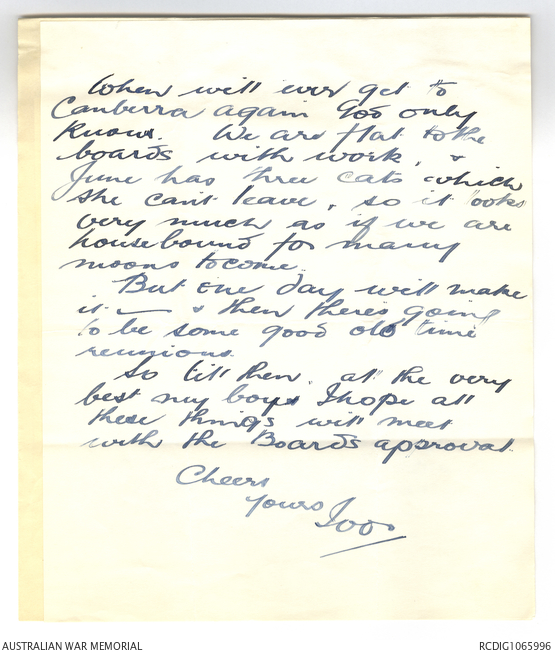 When will ever get to
Canberra again God only
knows. We are flat to the
boards with work, &
June has three cats which
she can't leave, so it looks
very much as if we are
housebound for many
moons to come.
But one day will make
it — & then there's going
to be some good old time
reunions.
So till then, all the very
best my boys I hope all
these things will meet
with the Boards approval.
Cheers
Yours
AUSTRALIAN WAR MEMORIAL
RCDIG1065996